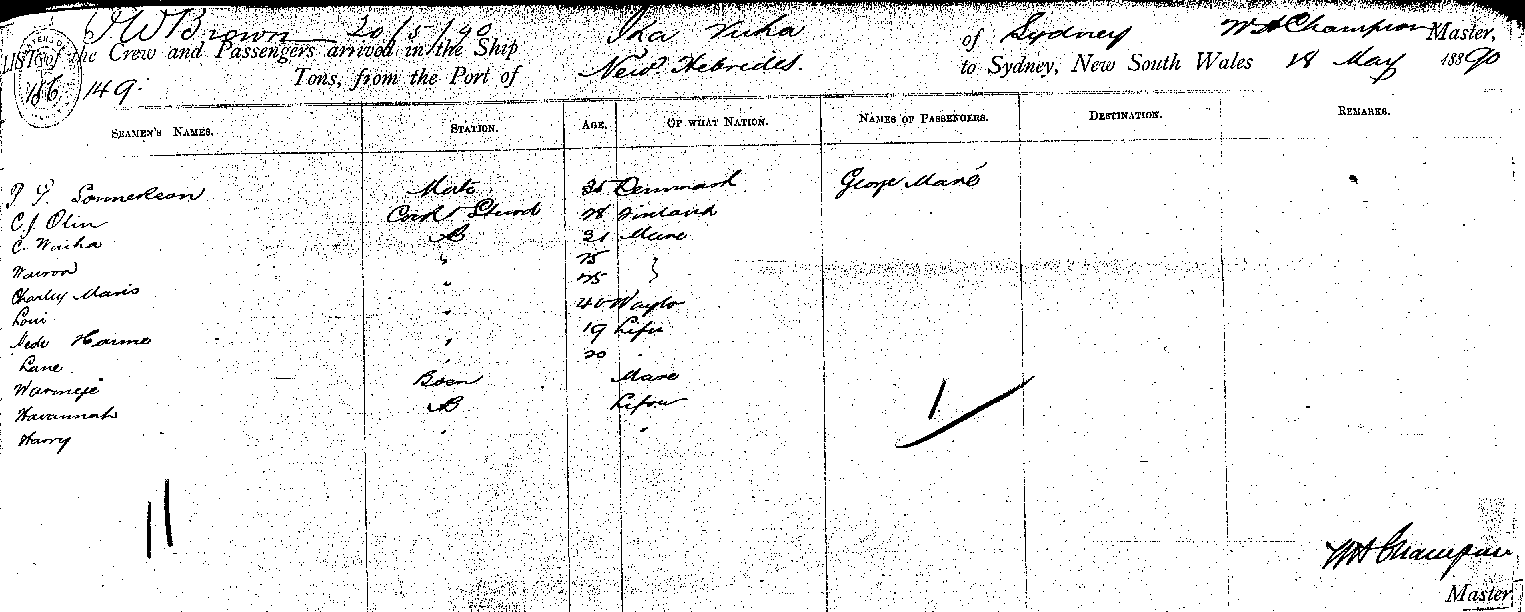 J W Brown 20/5/90
LIST of the Crew and Passengers arrived in the Ship Ika Vuka of Sydney W H Champion Master,
186 149 Tons, from the Port of New Hebrides. to Sydney, New South Wales 18 May 1890
SEAMEN'S NAMES. STATION. AGE. OF WHAT NATION. NAMES OF PASSENGERS. DESTINATION. REMARKS.
Mate Denmark George Maré
C J Olin Cook & Stwd 28 Finland
C. AB 31 Mare
" 25 }
Charley " 25
Loui " 40
" 19 Lifu
Lane " 20 "
Bosn Mare
Havannah AB Lifou
Harry " "
1
11
W H Champion
Master